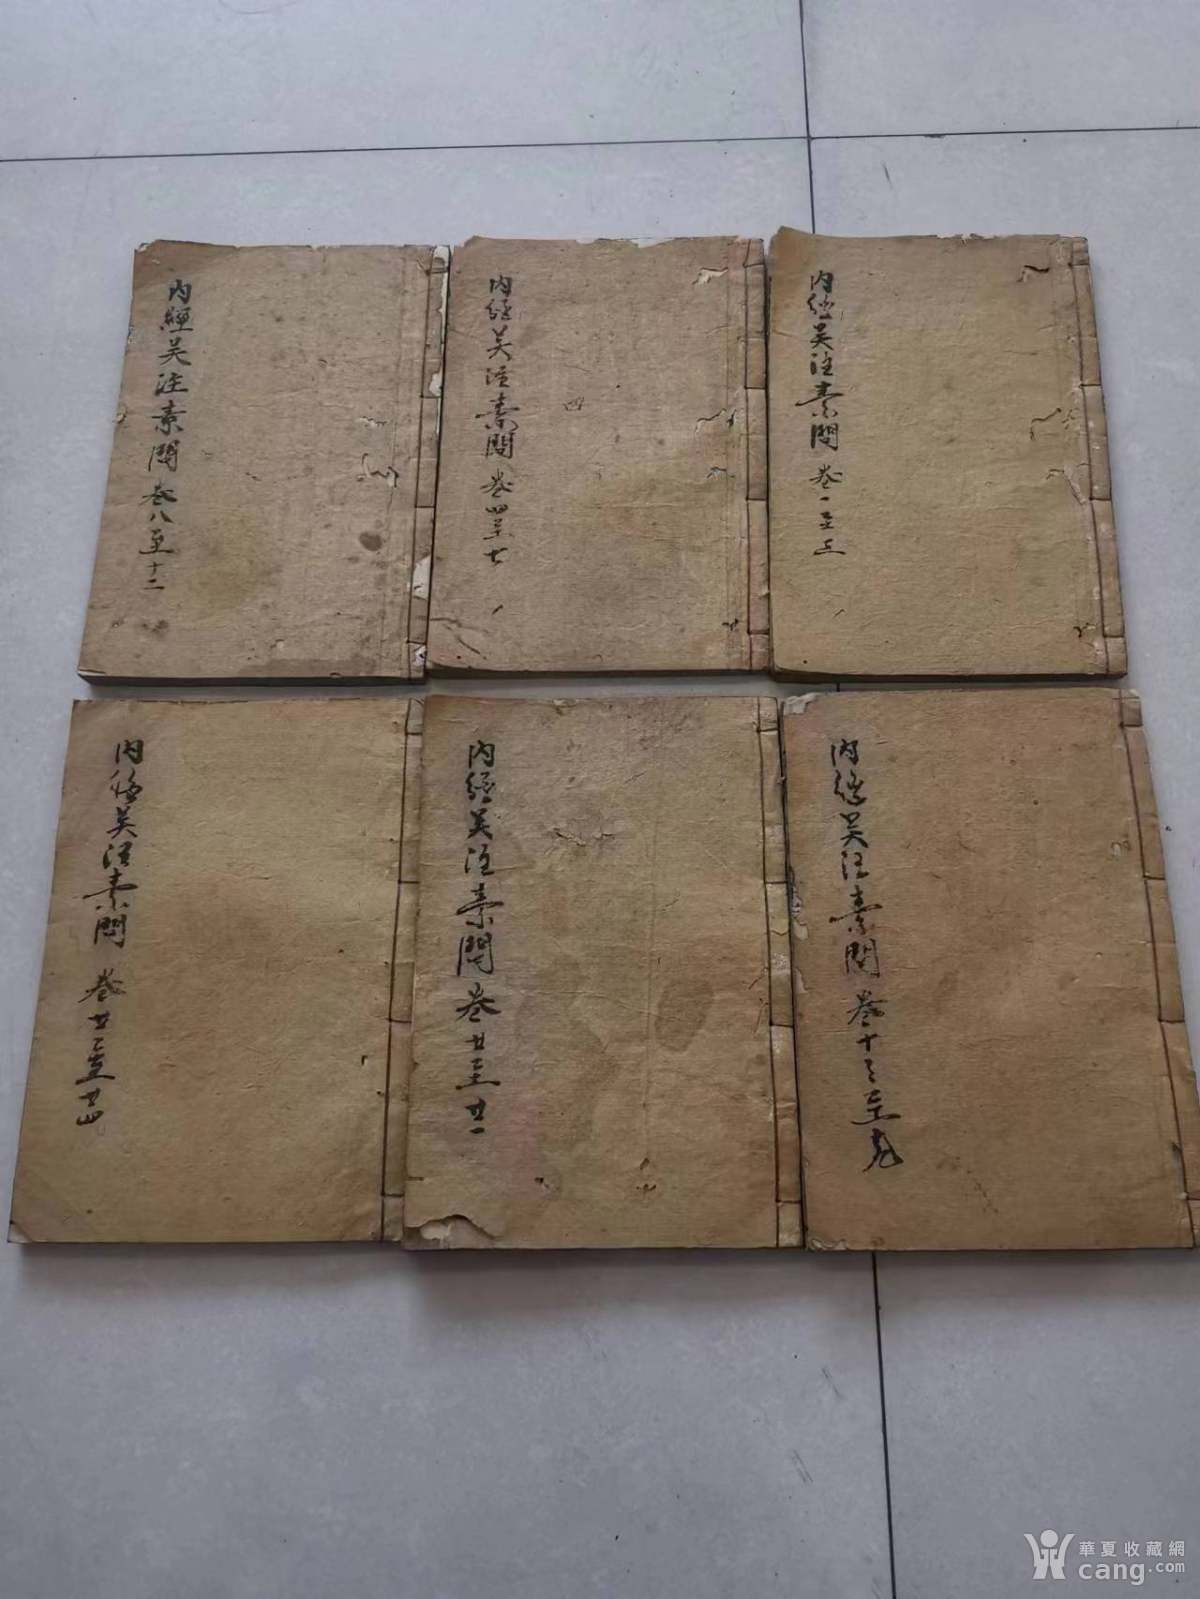 内經吴注素問 卷一至三
内經吴注素問 卷四至七
四
内經吴注素問 卷八至十二
内經吴注素問 卷十三至九
内經吴注素問 卷廿至廿一
内經吴注素問 卷廿二至廿四
華夏收藏網
cang.com